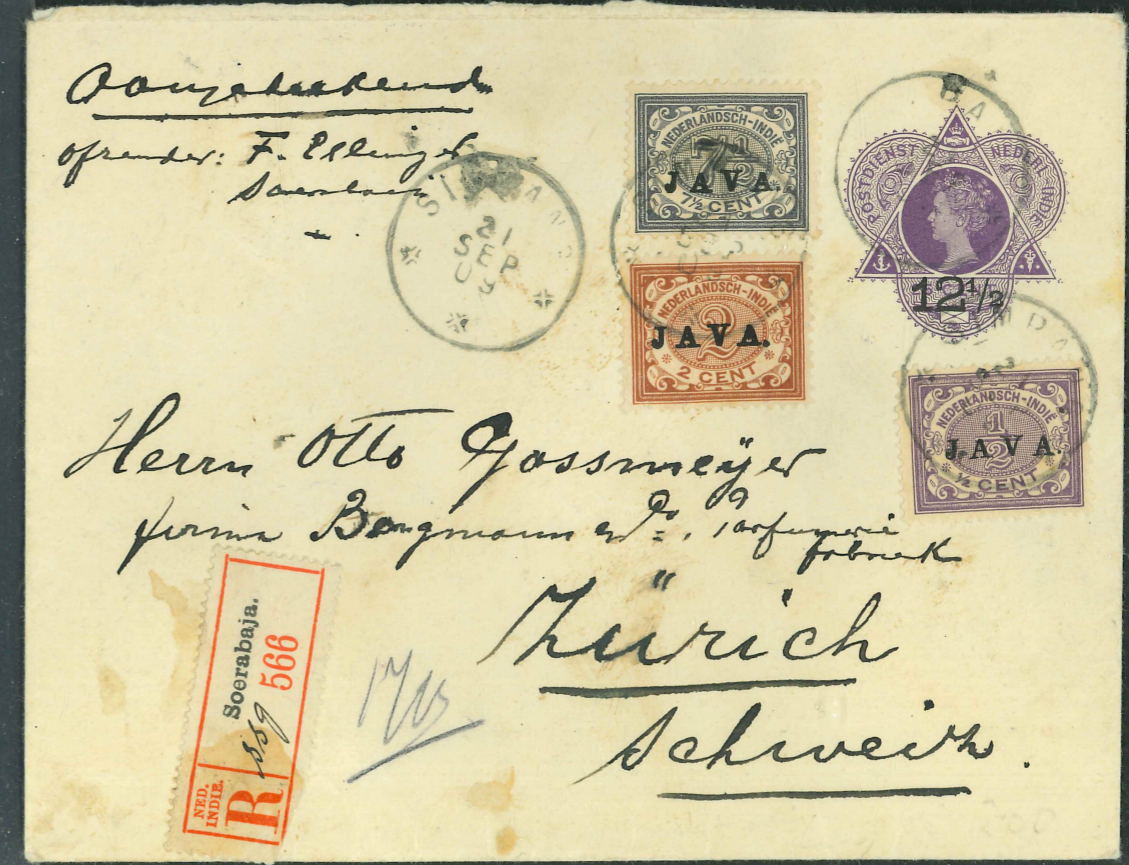 Aangeteekend
afzender: F. Ellinger
Soerabaia
SIMPANG
21
SEP
09
NEDERLANDSCH-INDIË
7½
JAVA.
7½ CENT
NEDERLANDSCH-INDIË
2
JAVA.
2 CENT
POSTDIENST NEDERL-INDIE
12½
NEDERLANDSCH-INDIË
½
JAVA.
½ CENT
Herrn Otto Gossmeÿer
firma Bergmann & Co, Parfumerie
fabriek
Zürich
Schweiz.
NED.
INDIE.
R
Soerabaja.
559
566